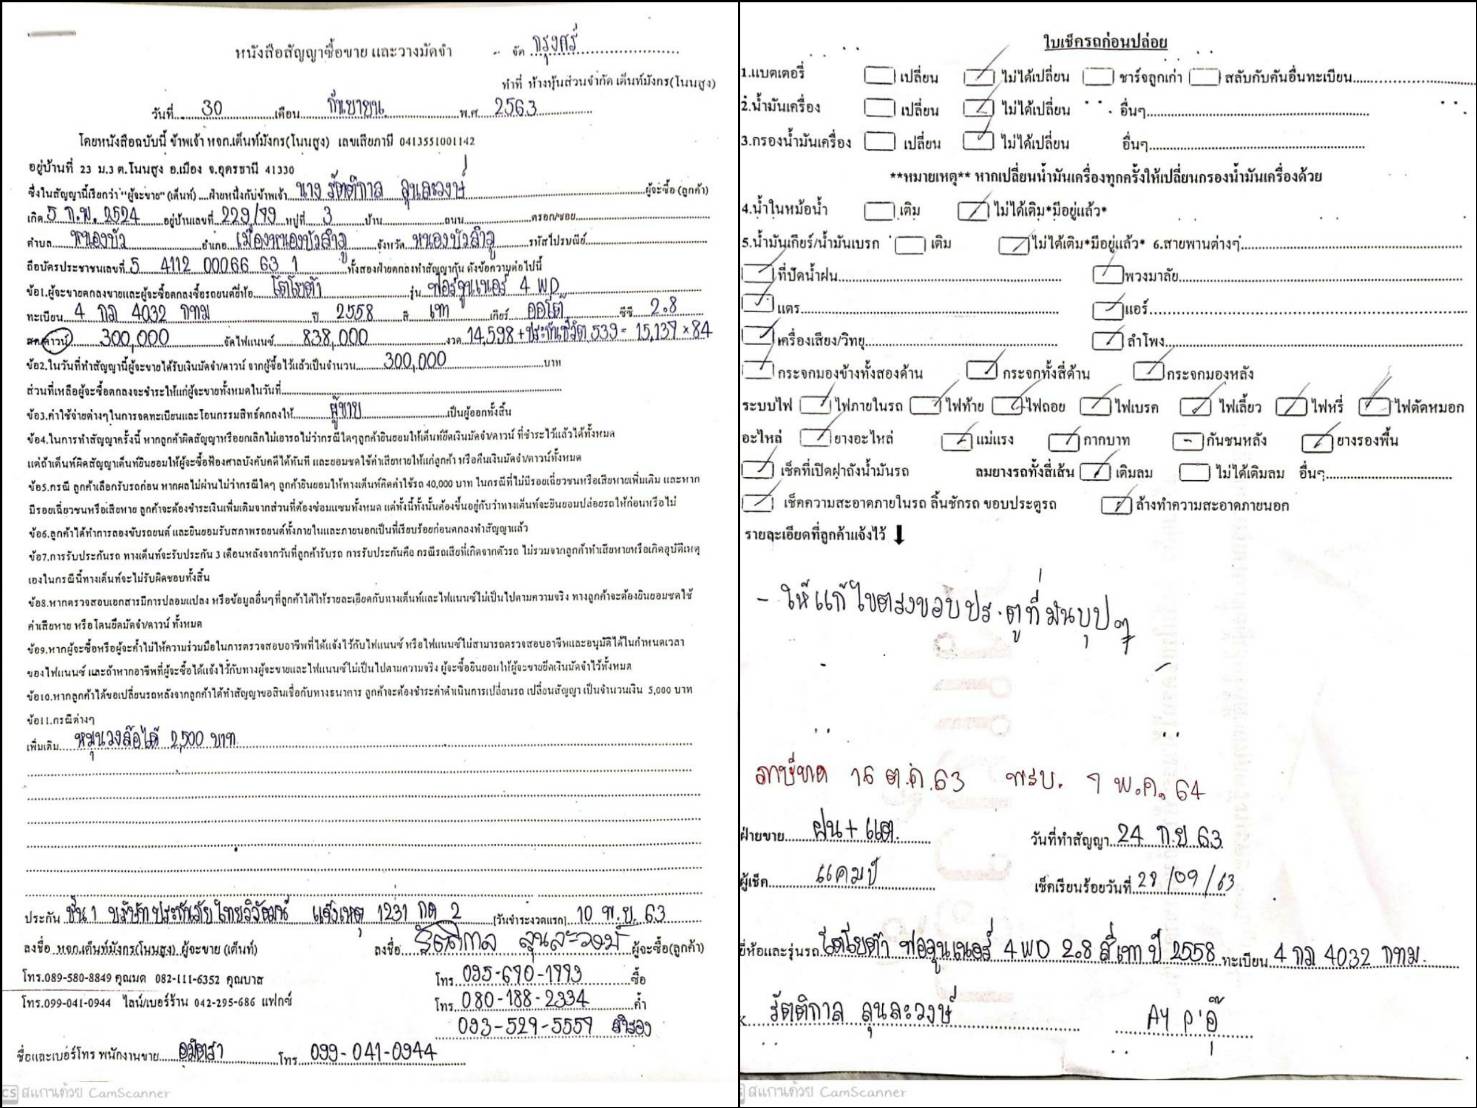 หนังสือสัญญาซื้อขาย และวางมัดจำ
จัด กรุงศรี
ทำที่ ห้างหุ้นส่วนจำกัด เต็นท์มังกร(โนนสูง)
วันที่ 30 เดือน กันยายน พ.ศ 2563
โดยหนังสือฉบับนี้ ข้าพเจ้า หจก.เต็นท์มังกร(โนนสูง) เลขเสียภานี 0413551001142
อยู่บ้านที่ 23 ม.3 ต.โนนสูง อ.เมือง จ.อุดรธานี 41330
ซึ่งในสัญญานี้เรียกว่า "ผู้จะขาย" (เต็นท์) ฝ่ายหนึ่งกับข้าพเจ้า นาง รัตติกาล ลุนละวงษ์ ผู้จะซื้อ (ลูกค้า)
เกิด 5 ก.พ. 2524 อยู่บ้านเลขที่ 229/99 หมู่ที่ 3 บ้าน ถนน ตรอก/ซอย
ตำบล หนองบัว อำเภอ เมืองหนองบัวลำภู จังหวัด หนองบัวลำภู รหัสไปรษณีย์
ถือบัตรประชาชนเลขที่ 5 4112 00066 63 1 ทั้งสองฝ่ายตกลงทำสัญญากัน ดังข้อความต่อไปนี้
ข้อ1.ผู้จะขายตกลงขายและผู้จะซื้อตกลงซื้อรถยนต์ยี่ห้อ โตโยต้า รุ่น ฟอร์จูนเนอร์ 4 WD
ทะเบียน 4 กฎ 4032 กทม ปี 2558 สี เทา เกียร์ ออโต้ ซีซี 2.8
สด/ดาวน์ 300,000 จัดไฟแนนซ์ 838,000 งวด 14,598 + ประกันชีวิต 539 = 15,137 × 84
ข้อ2.ในวันที่ทำสัญญานี้ผู้จะขายได้รับเงินมัดจำ/ดาวน์ จากผู้ซื้อไว้แล้วเป็นจำนวน 300,000 บาท
ส่วนที่เหลือผู้จะซื้อตกลงจะชำระให้แก่ผู้จะขายทั้งหมดในวันที่
ข้อ3.ค่าใช้จ่ายต่างๆในการจดทะเบียนและโอนกรรมสิทธิ์ตกลงให้ ผู้ขาย เป็นผู้ออกทั้งสิ้น
ข้อ4.ในการทำสัญญาครั้งนี้ หากลูกค้าผิดสัญญาหรือยกเลิกไม่เอารถไม่ว่ากรณีใดๆลูกค้ายินยอมให้เต็นท์ยึดเงินมัดจำ/ดาวน์ ที่ชำระไว้แล้วได้ทั้งหมด
แต่ถ้าเต็นท์ผิดสัญญาเต็นท์ยินยอมให้ผู้จะซื้อฟ้องศาลบังคับคดีได้ทันที และยอมชดใช้ค่าเสียหายให้แก่ลูกค้า หรือคืนเงินมัดจำ/ดาวน์ทั้งหมด
ข้อ5.กรณี ลูกค้าเลือกรับรถก่อน หากผลไม่ผ่านไม่ว่ากรณีใดๆ ลูกค้ายินยอมให้ทางเต็นท์คิดค่าใช้รถ 40,000 บาท ในกรณีที่ไม่มีรอยเฉี่ยวชนหรือเสียหายเพิ่มเติม และหาก
มีรอยเฉี่ยวชนหรือเสียหาย ลูกค้าจะต้องชำระเงินเพิ่มเติมจากส่วนที่ต้องซ่อมแซมทั้งหมด แต่ทั้งนี้ทั้งนั้นต้องขึ้นอยู่กับว่าทางเต็นท์จะยินยอมปล่อยรถให้ก่อนหรือไม่
ข้อ6.ลูกค้าได้ทำการลองขับรถยนต์ และยินยอมรับสภาพรถยนต์ทั้งภายในและภายนอกเป็นที่เรียบร้อยก่อนตกลงทำสัญญาแล้ว
ข้อ7.การรับประกันรถ ทางเต็นท์จะรับประกัน 3 เดือนหลังจากวันที่ลูกค้ารับรถ การรับประกันคือ กรณีรถเสียที่เกิดจากตัวรถ ไม่รวมจากลูกค้าทำเสียหายหรือเกิดอุบัติเหตุ
เองในกรณีนี้ทางเต็นท์จะไม่รับผิดชอบทั้งสิ้น
ข้อ8.หากตรวจสอบเอกสารมีการปลอมแปลง หรือข้อมูลอื่นๆที่ลูกค้าได้ให้รายละเอียดกับทางเต็นท์และไฟแนนซ์ไม่เป็นไปตามความจริง ทางลูกค้าจะต้องยินยอมชดใช้
ค่าเสียหาย หรือโดนยึดมัดจำ/ดาวน์ ทั้งหมด
ข้อ9.หากผู้จะซื้อหรือผู้จะค้ำไม่ให้ความร่วมมือในการตรวจสอบอาชีพที่ได้แจ้งไว้กับไฟแนนซ์ หรือไฟแนนซ์ไม่สามารถตรวจสอบอาชีพและอนุมัติได้ในกำหนดเวลา
ของไฟแนนซ์ และถ้าหากอาชีพที่ผู้จะซื้อได้แจ้งไว้กับทางผู้จะขายและไฟแนนซ์ไม่เป็นไปตามความจริง ผู้จะซื้อยินยอมให้ผู้จะขายยึดเงินมัดจำไว้ทั้งหมด
ข้อ10.หากลูกค้าได้ขอเปลี่ยนรถหลังจากลูกค้าได้ทำสัญญาขอสินเชื่อกับทางธนาคาร ลูกค้าจะต้องชำระค่าดำเนินการเปลี่ยนรถ เปลี่ยนสัญญา เป็นจำนวนเงิน 5,000 บาท
ข้อ11.กรณีต่างๆ
เพิ่มเติม หมุนวงล้อได้ 2,500 บาท
ประกัน ชั้น 1 บริษัท ประกันภัย ไทยวิวัฒน์ แจ้งเหตุ 1231 กด 2 (วันชำระงวดแรก) 10 พ.ย. 63
ลงชื่อ หจก.เต็นท์มังกร(โนนสูง) ผู้จะขาย (เต็นท์) ลงชื่อ รัตติกาล ลุนละวงษ์ ผู้จะซื้อ(ลูกค้า)
โทร.089-580-8849 คุณมด 082-111-6352 คุณบาส โทร. 095-690-1993 ซื้อ
โทร.099-041-0944 ไลน์/เบอร์ร้าน 042-295-686 แฟกซ์ โทร. 080-188-2334 ค้ำ
093-529-5559 สำรอง
ชื่อและเบอร์โทร พนักงานขาย อมิตรา โทร 099-041-0944
CS สแกนด้วย CamScanner
ใบเช็ครถก่อนปล่อย
1.แบตเตอรี่ เปลี่ยน ไม่ได้เปลี่ยน ชาร์จลูกเก่า สลับกับคันอื่นทะเบียน
2.น้ำมันเครื่อง เปลี่ยน ไม่ได้เปลี่ยน อื่นๆ
3.กรองน้ำมันเครื่อง เปลี่ยน ไม่ได้เปลี่ยน อื่นๆ
**หมายเหตุ** หากเปลี่ยนน้ำมันเครื่องทุกครั้งให้เปลี่ยนกรองน้ำมันเครื่องด้วย
4.น้ำในหม้อน้ำ เติม ไม่ได้เติม*มีอยู่แล้ว*
5.น้ำมันเกียร์/น้ำมันเบรก เติม ไม่ได้เติม*มีอยู่แล้ว* 6.สายพานต่างๆ
ที่ปัดน้ำฝน พวงมาลัย
แตร แอร์
เครื่องเสียง/วิทยุ ลำโพง
กระจกมองข้างทั้งสองด้าน กระจกทั้งสี่ด้าน กระจกมองหลัง
ระบบไฟ ไฟภายในรถ ไฟท้าย ไฟถอย ไฟเบรค ไฟเลี้ยว ไฟหรี่ ไฟตัดหมอก
อะไหล่ ยางอะไหล่ แม่แรง กากบาท กันชนหลัง ยางรองพื้น
เช็คที่เปิดฝาถังน้ำมันรถ ลมยางรถทั้งสี่เส้น เติมลม ไม่ได้เติมลม อื่นๆ
เช็คความสะอาดภายในรถ ลิ้นชักรถ ขอบประตูรถ ล้างทำความสะอาดภายนอก
รายละเอียดที่ลูกค้าแจ้งไว้
- ให้แก้ไขตรงขอบประตูที่มันบุบๆ
ภาษีขาด 16 ต.ค. 63 พรบ. 7 พ.ค. 64
ฝ่ายขาย ฝน + แต วันที่ทำสัญญา 24 ก.ย 63
ผู้เช็ค แคมป์ เช็คเรียบร้อยวันที่ 28/09/63
ยี่ห้อและรุ่นรถ โตโยต้า ฟอจูนเนอร์ 4WD 2.8 สีเทา ปี 2558 ทะเบียน 4 กฎ 4032 กทม.
รัตติกาล ลุนละวงษ์
สแกนด้วย CamScanner